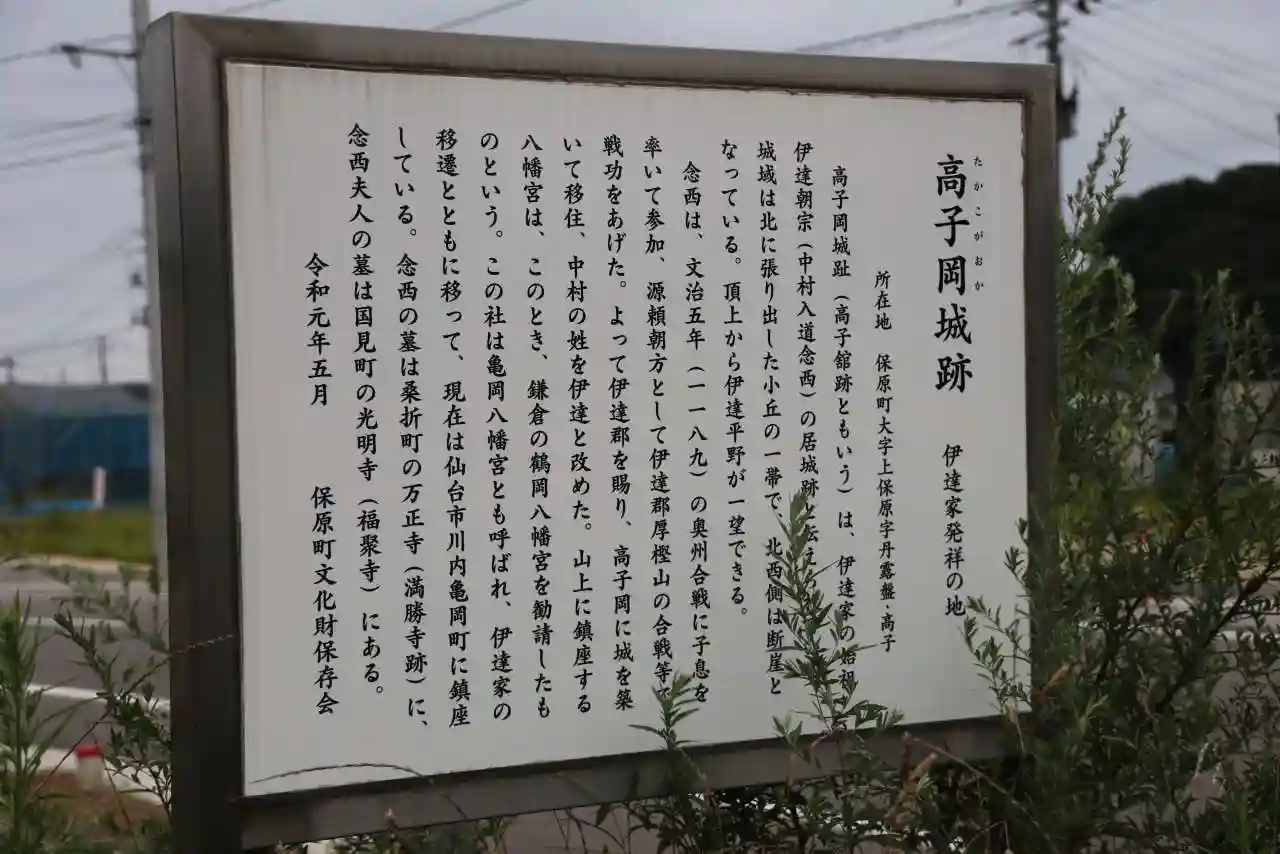 たかこがおか
高子岡城跡　伊達家発祥の地
所在地　保原町大字上保原字丹露盤、高子
高子岡城趾（高子舘跡ともいう）は、伊達家の始祖
伊達朝宗（中村入道念西）の居城跡と伝え
城域は北に張り出した小丘の一帯で、北西側は断崖と
なっている。頂上から伊達平野が一望できる。
念西は、文治五年（一一八九）の奥州合戦に子息を
率いて参加、源頼朝方として伊達郡厚樫山の合戦等で
戦功をあげた。よって伊達郡を賜り、高子岡に城を築
いて移住、中村の姓を伊達と改めた。山上に鎮座する
八幡宮は、このとき、鎌倉の鶴岡八幡宮を勧請したも
のという。この社は亀岡八幡宮とも呼ばれ、伊達家の
移遷とともに移って、現在は仙台市川内亀岡町に鎮座
している。念西の墓は桑折町の万正寺（満勝寺跡）に、
念西夫人の墓は国見町の光明寺（福聚寺）にある。
令和元年五月　保原町文化財保存会